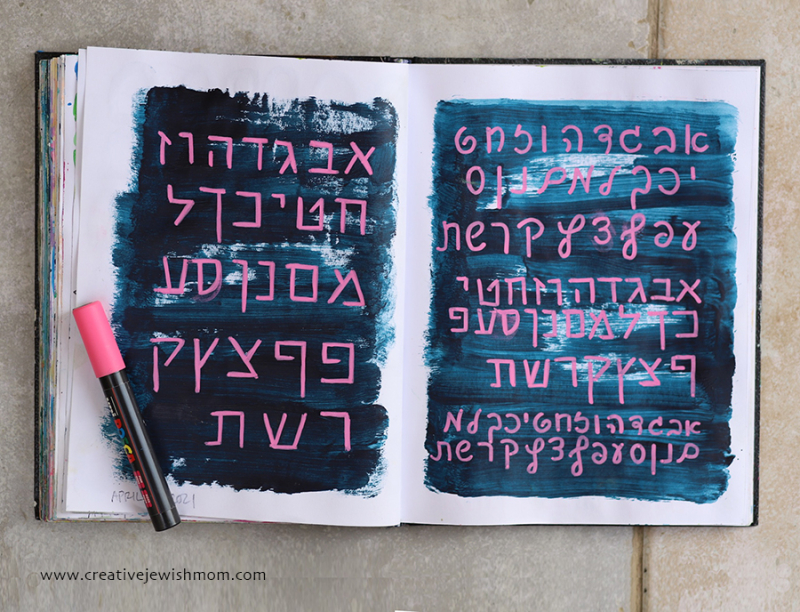 אבגדהוז
חטיכךל
מםנןסע
פףצץק
רשת
APRIL 2021
אבגדהוזחט
יכךלמםנןס
עפףצץקרשת
אבגדהוזחטי
כךלמםנןסעפ
ףצץקרשת
אבגדהוזחטיכךלמ
םנןסעפףצץקרשת
www.creativejewishmom.com